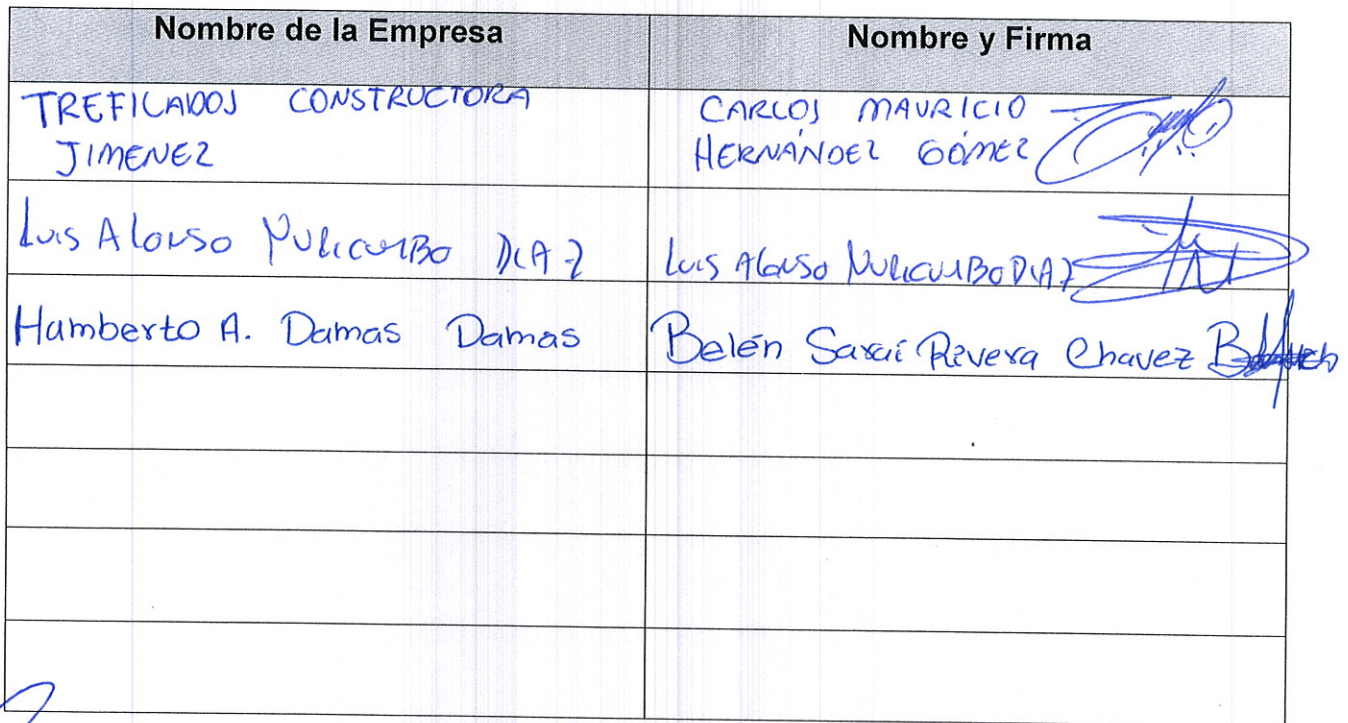 Nombre de la Empresa
Nombre y Firma
TREFILADOS CONSTRUCTORA
JIMENEZ
CARLOS MAURICIO
HERNÁNDEZ GÓMEZ
Luis Alonso DIAZ
Luis Alonso DIAZ
Humberto A. Damas Damas
Belén Saraí Rivera Chavez